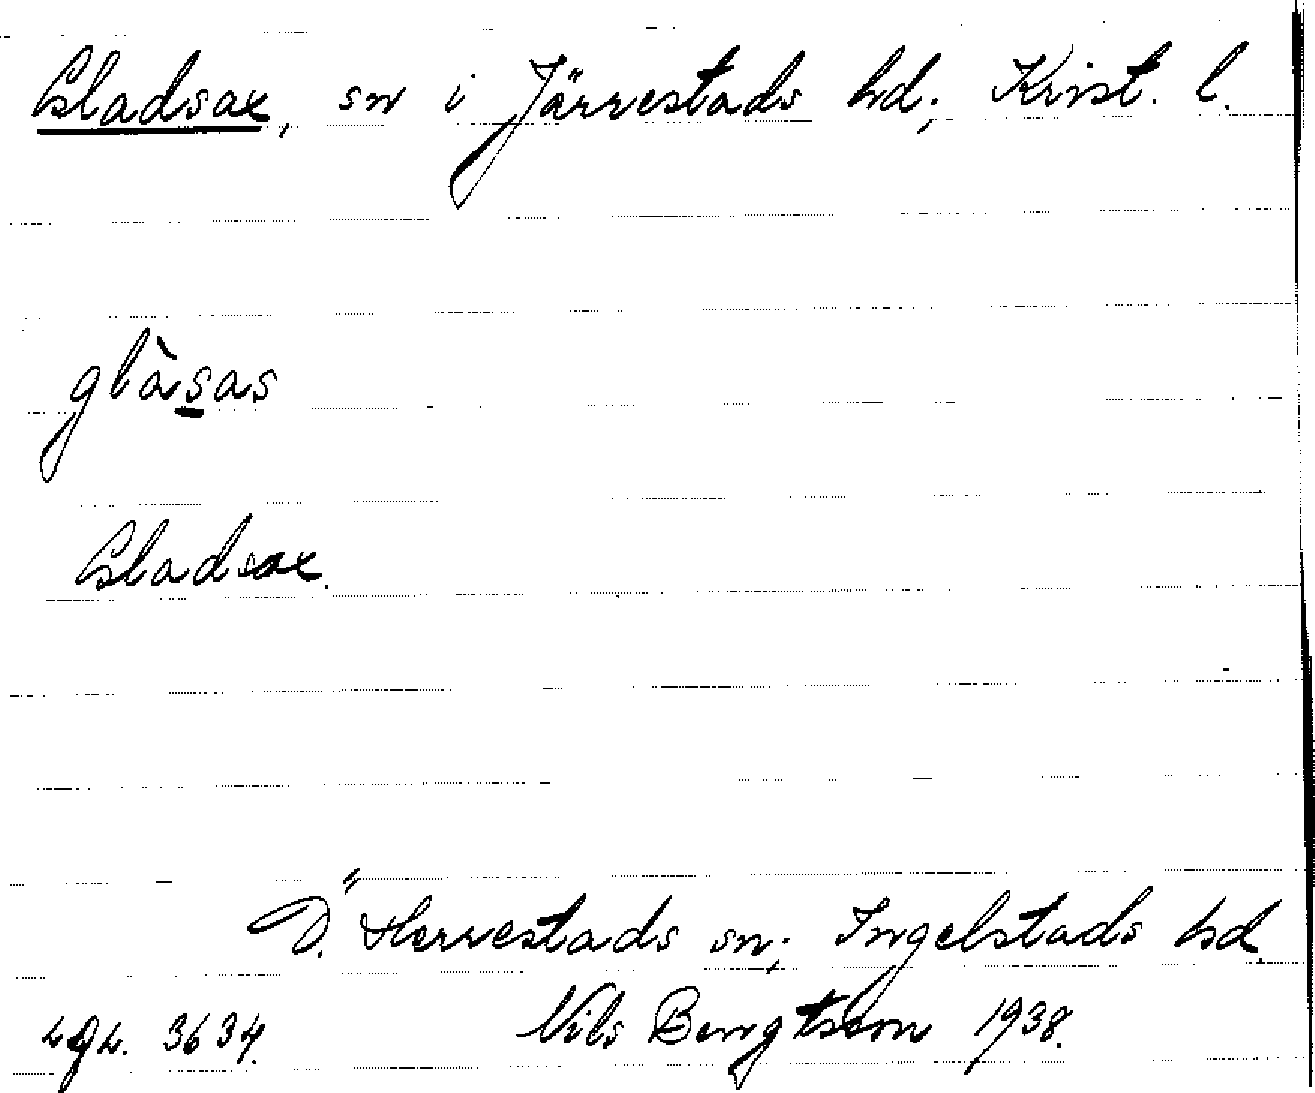 Gladsax, sn i Järrestads hd; Krist. l.
glàsas
Gladsax.
Ö. Herrestads sn; Ingelstads hd
3634. Nils Bengtsson 1938.